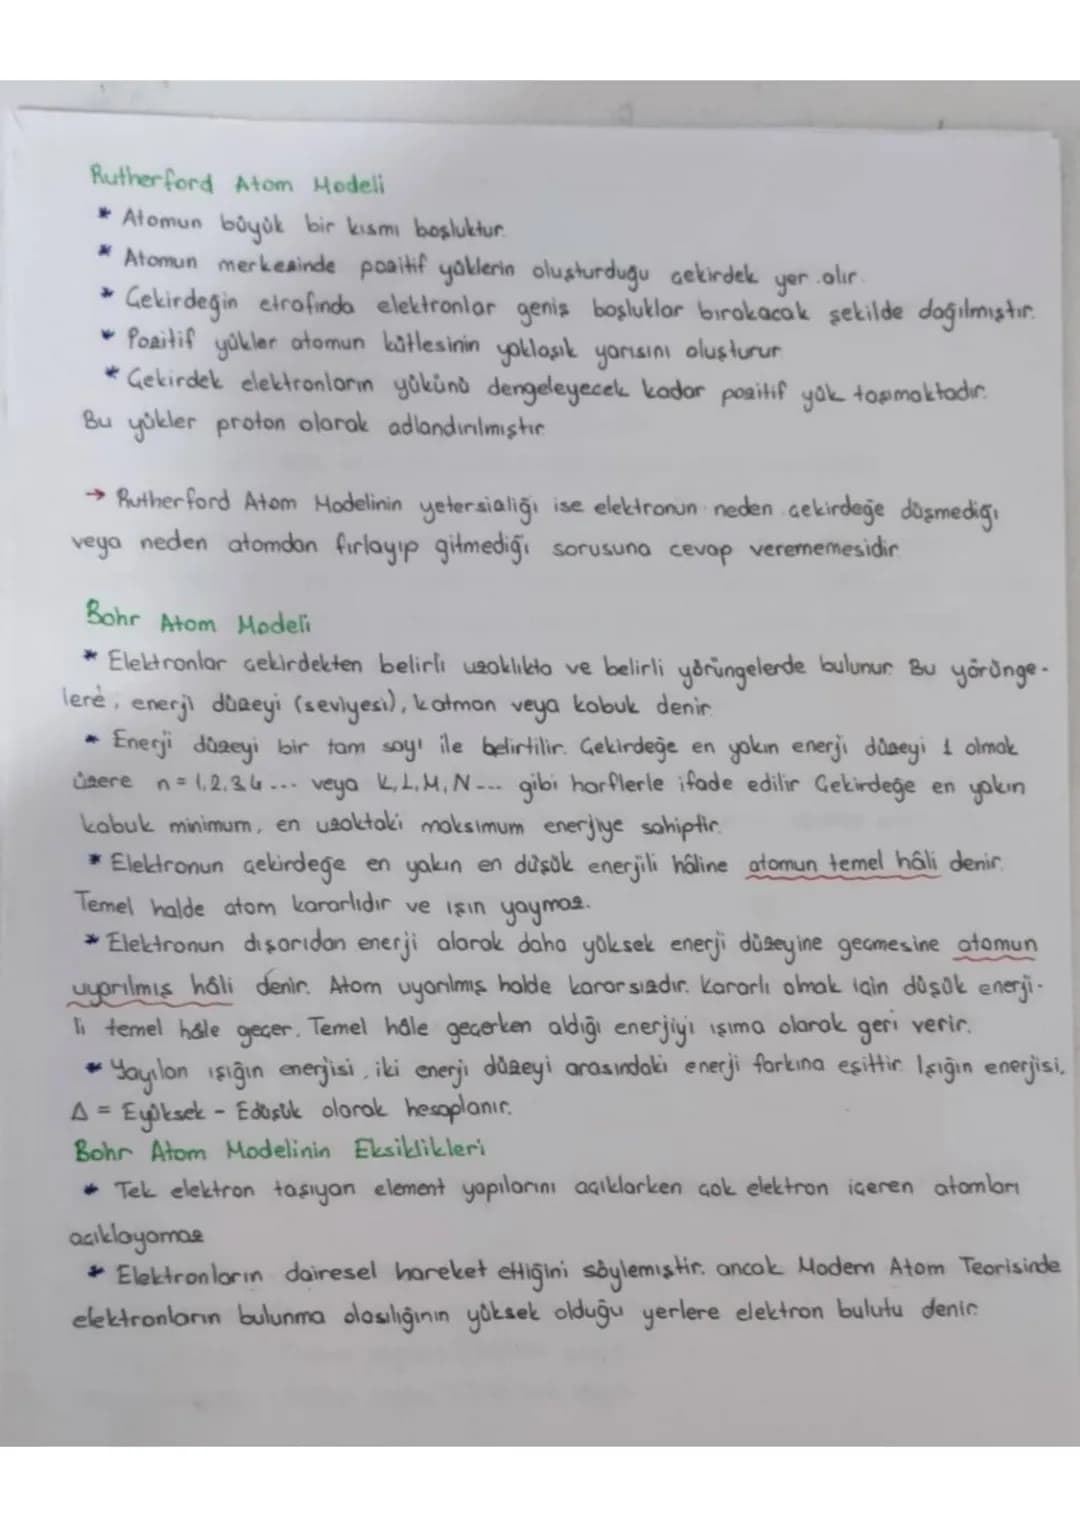 Rutherford Atom Modeli
* Atomun büyük bir kısmı boşluktur.
* Atomun merkezinde pozitif yüklerin oluşturduğu çekirdek yer alır.
* Çekirdeğin etrafında elektronlar geniş boşluklar bırakacak şekilde dağılmıştır.
* Pozitif yükler atomun kütlesinin yaklaşık yarısını oluşturur
* Çekirdek elektronların yükünü dengeleyecek kadar pozitif yük taşımaktadır.
Bu yükler proton olarak adlandırılmıştır
→ Rutherford Atom Modelinin yetersizliği ise elektronun neden çekirdeğe düşmediği
veya neden atomdan fırlayıp gitmediği sorusuna cevap verememesidir
Bohr Atom Modeli
* Elektronlar çekirdekten belirli uzaklıkta ve belirli yörüngelerde bulunur. Bu yörünge-
lere, enerji düzeyi (seviyesi), katman veya kabuk denir
* Enerji düzeyi bir tam sayı ile belirtilir. Çekirdeğe en yakın enerji düzeyi 1 olmak
üzere n = 1,2,3,4 ... veya K, L, M, N ... gibi harflerle ifade edilir Çekirdeğe en yakın
kabuk minimum, en uzaktaki maksimum enerjiye sahiptir.
* Elektronun çekirdeğe en yakın en düşük enerjili hâline atomun temel hâli denir.
Temel halde atom kararlıdır ve ışın yaymaz.
* Elektronun dışarıdan enerji alarak daha yüksek enerji düzeyine geçmesine atomun
uyarılmış hâli denir. Atom uyarılmış halde kararsızdır. Kararlı olmak için düşük enerji-
li temel hâle geçer. Temel hâle geçerken aldığı enerjiyi ışıma olarak geri verir.
* Yayılan ışığın enerjisi, iki enerji düzeyi arasındaki enerji farkına eşittir. Işığın enerjisi,
Δ = Eyüksek - Edüşük olarak hesaplanır.
Bohr Atom Modelinin Eksiklikleri
* Tek elektron taşıyan element yapılarını açıklarken çok elektron içeren atomları
açıklayamaz
* Elektronların dairesel hareket ettiğini söylemiştir. ancak Modern Atom Teorisinde
elektronların bulunma olasılığının yüksek olduğu yerlere elektron bulutu denir.